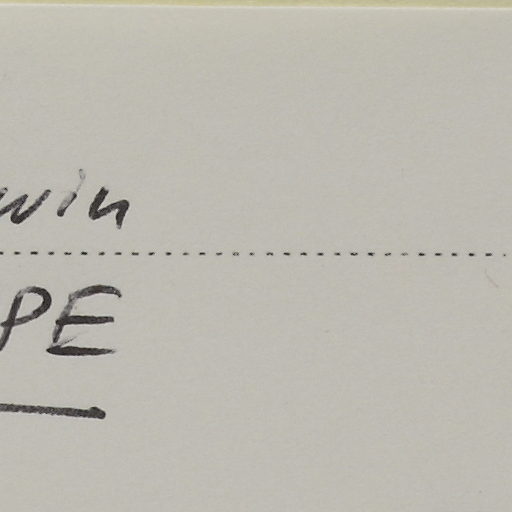 win
PE